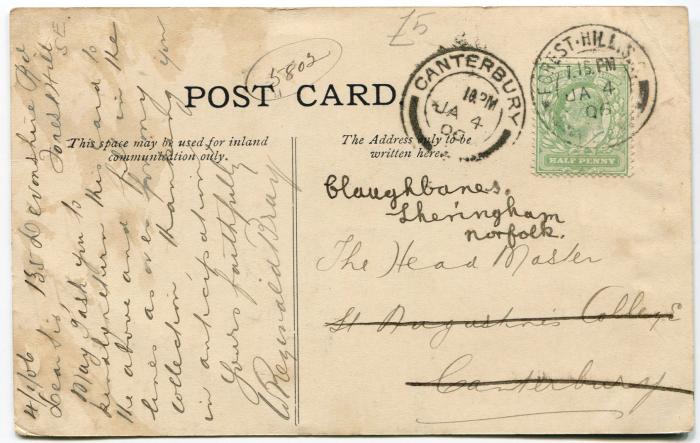 £5
5802
POST CARD
This space may be used for inland
communication only.
The Address only to be
written here.
CANTERBURY
PM
JA 4
06
FOREST-HILL.S.
7.15.PM
JA 4
06
HALF PENNY
4/1/06 135 Devonshire Rd
Forest Hill
S.E.
Dear Sir
May I ask you to
kindly return this card to
the above and fill in the
lines as over for my
collection thanking you
in anticipation
Yours faithfully
W Reginald Bray
Claughbanes.
Sheringham
Norfolk.
The Head Master
St Augustines College
Canterbury